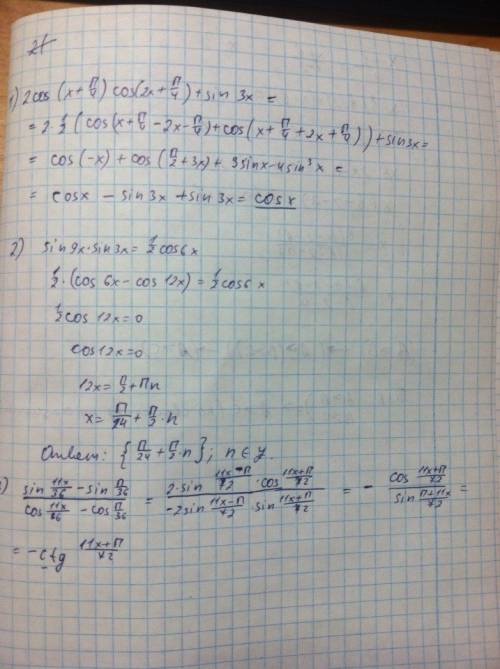 21
1) 2cos (x+π/4) cos(2x+π/4) + sin 3x =
= 2·1/2 (cos(x+π/4 -2x-π/4)+cos(x+π/4+2x+π/4)) + sin3x=
= cos(-x) + cos(π/2+3x) + 3sinx-4sin³x =
= cosx - sin3x + sin3x = cosx
2) sin9x·sin3x = 1/2 cos6x
1/2·(cos 6x - cos 12x) = 1/2 cos6x
1/2 cos 12x=0
cos12x=0
12x= π/2 + πn
x= π/24 + π/3·n
Ответ: {π/24 + π/2·n}; n∈y.
) (sin 11x/36 - sin π/36)/(cos 11x/36 - cos π/36) = (2·sin (11x-π)/72 · cos (11x+π)/72)/(-2sin (11x-π)/72 · sin (11x+π)/72) = - (cos (11x+π)/72)/(sin (π+11x)/72) =
= -ctg (11x+π)/72